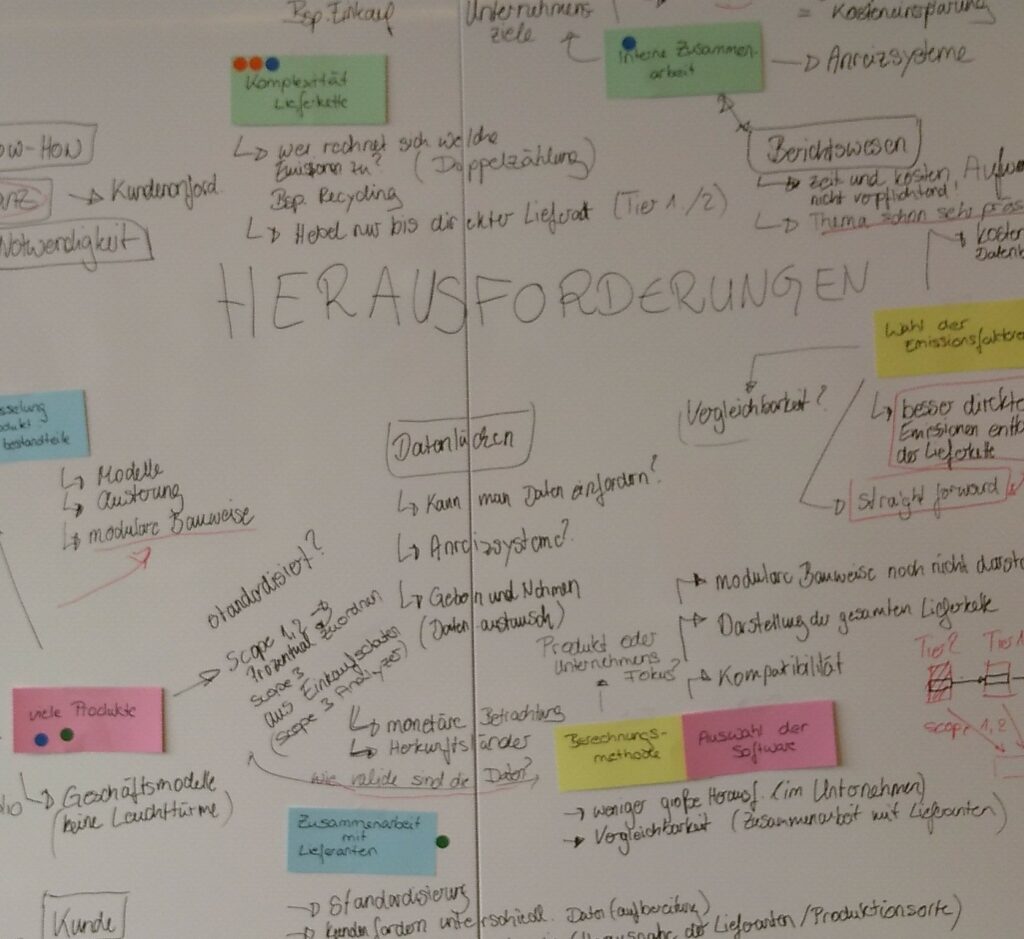 Bsp. Einkauf
Unternehmens
ziele
= Kosteneinsparung
Komplexität
Lieferkette
Interne Zusammen-
arbeit
Anreizsysteme
wer rechnet sich welche
Emissionen zu? (Doppelzählung)
Bsp. Recycling
Hebel nur bis direkter Lieferant (Tier 1./2)
Berichtswesen
Zeit und Kosten,
nicht verpflichtend,
Thema schon sehr
OW-HOW
Kundenanford.
Notwendigkeit
HERAUSFORDERUNGEN
Wahl der
Emissionsfaktoren
Vergleichbarkeit?
besser direkte
Emissionen
der Lieferkette
straight forward
bestandteile
Modelle
modulare Bauweise
Datenlücken
Kann man Daten einfordern?
Anreizsysteme?
Geben und Nehmen
(Datenaustausch)
standardisiert?
Scope 1,2 →
Prozentual zuordnen
Scope 3
aus Einkaufsdaten
(Scope 3 Analyzer)
monetäre Betrachtung
Herkunftsländer
wie valide sind die Daten?
viele Produkte
Geschäftsmodelle
(keine Leuchttürme)
Produkt oder
Unternehmens
Fokus?
modulare Bauweise noch nicht
Darstellung der gesamten Lieferkette
Kompatibilität
Tier 2 Tier 1
Scope 1,2
Berechnungs-
methode
Auswahl der
Software
→ weniger große Herausf. (im Unternehmen)
→ Vergleichbarkeit (Zusammenarbeit mit Lieferanten)
Zusammenarbeit
mit
Lieferanten
Standardisierung
Kunden fordern unterschiedl. Daten(aufbereitung)
der Lieferanten/Produktionsorte)
Kunde